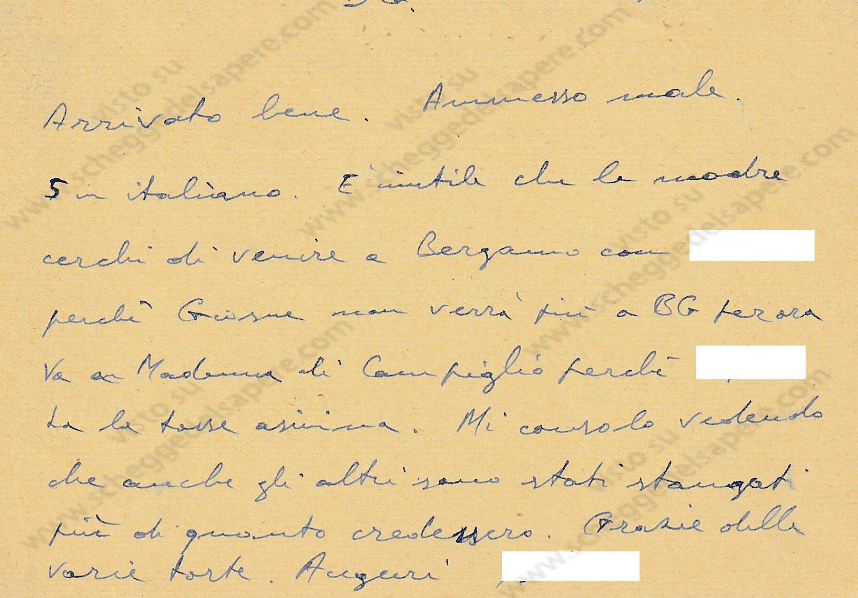 Arrivato bene. Ammesso male.
5 in italiano. E' inutile che la madre
cerchi di venire a Bergamo con
perchè Giosue non verrà più a BG per ora
va a Madonna di Campiglio perchè
ha la tosse asinina. Mi consolo vedendo
che anche gli altri sono stati stangati
più di quanto credessero. Grazie delle
varie torte. Auguri
visto su
www.scheggedelsapere.com